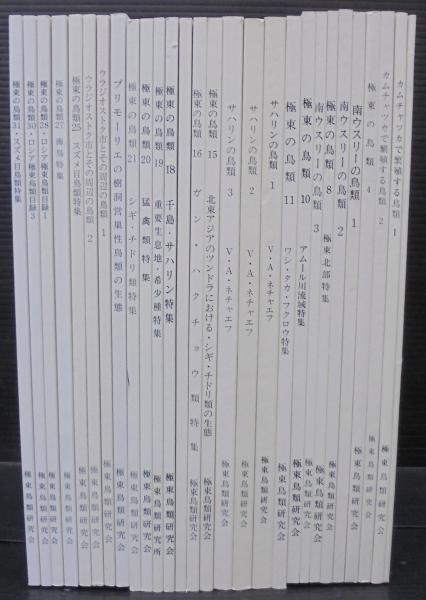 カムチャツカで繁殖する鳥類 1 極東鳥類研究会
カムチャツカで繁殖する鳥類 2 極東鳥類研究会
極東の鳥類 4 極東鳥類研究会
南ウスリーの鳥類 1 極東鳥類研究会
南ウスリーの鳥類 2
極東の鳥類 8 極東北部特集 極東鳥類研究会
南ウスリーの鳥類 3 極東鳥類研究会
極東の鳥類 10 アムール川流域特集 極東鳥類研究会
極東の鳥類 11 ワシ・タカ・フクロウ特集 極東鳥類研究会
サハリンの鳥類 1 V・A・ネチャエフ 極東鳥類研究会
サハリンの鳥類 2 V・A・ネチャエフ 極東鳥類研究会
サハリンの鳥類 3 V・A・ネチャエフ 極東鳥類研究会
極東の鳥類 15 北東アジアのツンドラにおける・シギ・チドリ類の生態 極東鳥類研究会
極東の鳥類 16 ガン・ハクチョウ類特集 極東鳥類研究会
極東の鳥類 18 千島・サハリン特集 極東鳥類研究会
極東の鳥類 19 重要生息地・希少種特集 極東鳥類研究所
極東の鳥類 20 猛禽類特集 極東鳥類研究会
極東の鳥類 21 シギ・チドリ類特集 極東鳥類研究会
プリモーリエの樹洞営巣性鳥類の生態 極東鳥類研究会
ウラジオストク市とその周辺の鳥類 1 極東鳥類研究会
ウラジオストク市とその周辺の鳥類 2 極東鳥類研究会
極東の鳥類25 スズメ目鳥類特集 極東鳥類研究会
極東の鳥類27 海鳥特集 極東鳥類研究会
極東の鳥類28・ロシア極東鳥類目録1 極東鳥類研究会
極東の鳥類30・ロシア極東鳥類目録3 極東鳥類研究会
極東の鳥類31・スズメ目鳥類特集 極東鳥類研究会